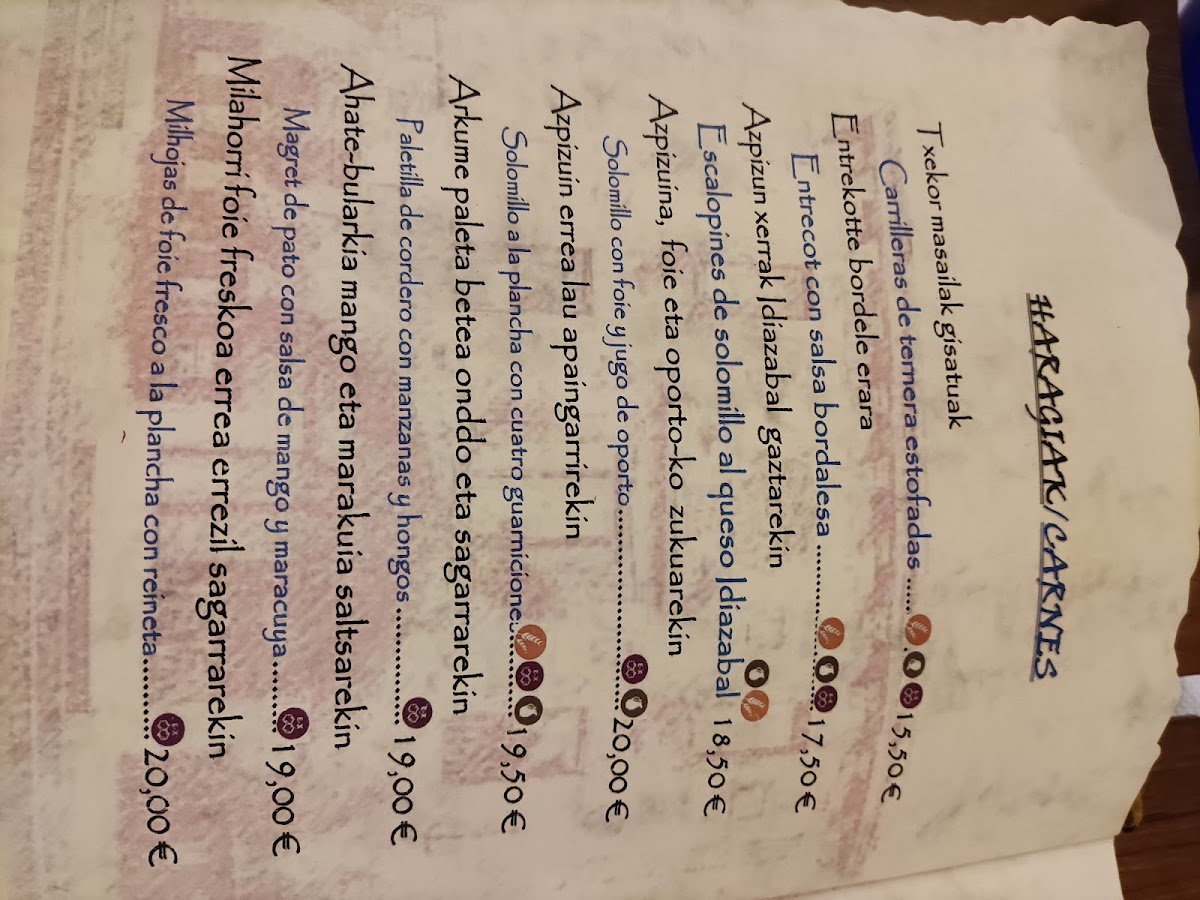 HARAGIAK/CARNES
Txekor masailak gisatuak
Carrilleras de ternera estofadas ..... 15,50 €
Entrekotte bordele erara
Entrecot con salsa bordalesa ............... 17,50 €
Azpizun xerrak Idiazabal gaztarekin
Escalopines de solomillo al queso Idiazabal 18,50 €
Azpizuina, foie eta oporto-ko zukuarekin
Solomillo con foie y jugo de oporto........................... 20,00 €
Azpizuin errea lau apaingarrirekin
Solomillo a la plancha con cuatro guarniciones........ 19,50 €
Arkume paleta betea onddo eta sagarrarekin
Paletilla de cordero con manzanas y hongos .............. 19,00 €
Ahate-bularkia mango eta marakuia saltsarekin
Magret de pato con salsa de mango y maracuya......... 19,00 €
Milahorri foie freskoa errea errezil sagarrarekin
Milhojas de foie fresco a la plancha con reineta.......... 20,00 €